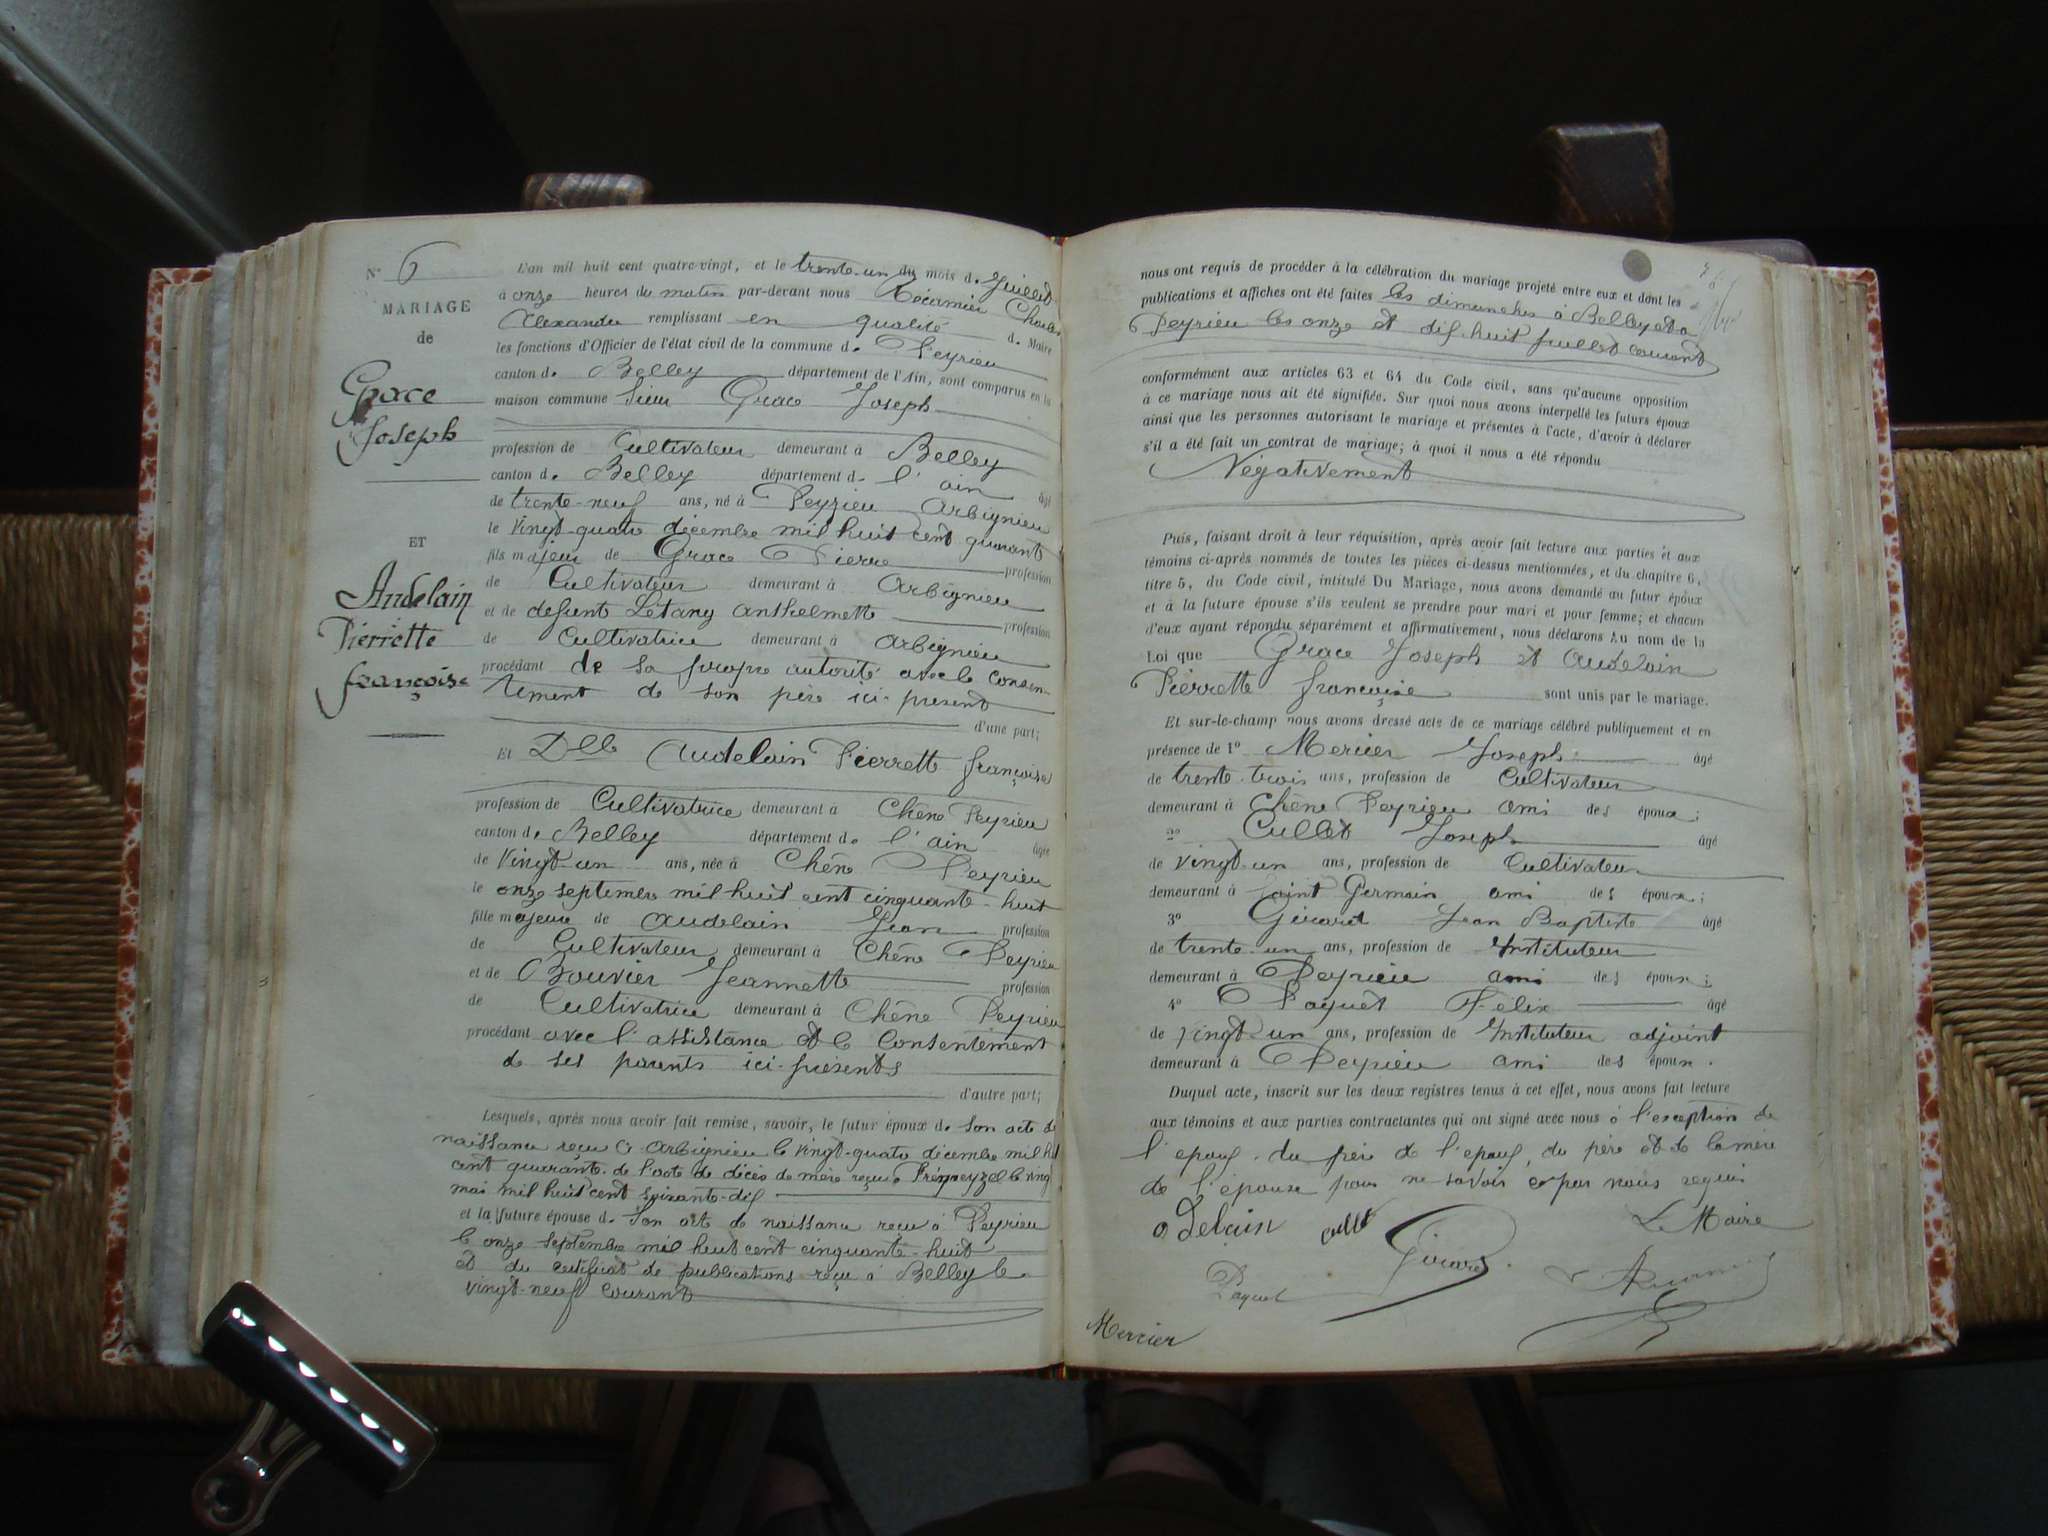 N° 6
MARIAGE
de
Grace
Joseph
ET
Audelain
Pierrette
françoise
L'an mil huit cent quatre-vingt, et le trente-un du mois de Juillet
à onze heures du matin par-devant nous Récamier Charles
Alexandre remplissant en qualité de Maire
les fonctions d'Officier de l'état civil de la commune de Peyrieu
canton de Belley département de l'Ain, sont comparus en la
maison commune Sieur Grace Joseph
profession de Cultivateur demeurant à Belley
canton de Belley département de l'ain âgé
de trente-neuf ans, né à Peyrieu Arbignieu
le vingt-quatre décembre mil huit cent quarante
fils majeur de Grace Pierre profession
de Cultivateur demeurant à Arbignieu
et de défunte Létany Anthelmette profession
de Cultivatrice demeurant à Arbignieu
procédant de sa propre autorité avec le consen-
tement de son père ici-présent
d'une part;
Et Dlle Audelain Pierrette françoise
profession de Cultivatrice demeurant à Chêne Peyrieu
canton de Belley département de l'ain âgée
de vingt-un ans, née à Chêne Peyrieu
le onze septembre mil huit cent cinquante-huit
fille majeure de Audelain Jean profession
de Cultivateur demeurant à Chêne Peyrieu
et de Bouvier Jeannette profession
de Cultivatrice demeurant à Chêne Peyrieu
procédant avec l'assistance et le Consentement
de ses parents ici-présents
d'autre part;
Lesquels, après nous avoir fait remise, savoir, le futur époux de son acte de
naissance reçu à Arbignieu le vingt-quatre décembre mil huit
cent quarante. de l'acte de décès de mère reçu à Prémeyzel le vingt
mai mil huit cent soixante-dix
et la future épouse de son acte de naissance reçu à Peyrieu
le onze septembre mil huit cent cinquante-huit
et du certificat de publications reçu à Belley le
vingt-neuf courant
nous ont requis de procéder à la célébration du mariage projeté entre eux et dont les
publications et affiches ont été faites les dimanches à Belley et à
Peyrieu les onze et dix-huit juillet courant
conformément aux articles 63 et 64 du Code civil, sans qu'aucune opposition
à ce mariage nous ait été signifiée. Sur quoi nous avons interpellé les futurs époux
ainsi que les personnes autorisant le mariage et présentes à l'acte, d'avoir à déclarer
s'il a été fait un contrat de mariage; à quoi il nous a été répondu
Négativement
Puis, faisant droit à leur réquisition, après avoir fait lecture aux parties et aux
témoins ci-après nommés de toutes les pièces ci-dessus mentionnées, et du chapitre 6,
titre 5, du Code civil, intitulé Du Mariage, nous avons demandé au futur époux
et à la future épouse s'ils veulent se prendre pour mari et pour femme; et chacun
d'eux ayant répondu séparément et affirmativement, nous déclarons Au nom de la
Loi que Grace Joseph et Audelain
Pierrette françoise sont unis par le mariage.
Et sur-le-champ nous avons dressé acte de ce mariage célébré publiquement et en
présence de 1° Mercier Joseph âgé
de trente-trois ans, profession de Cultivateur
demeurant à Chêne Peyrieu ami des époux;
2° Cullet Joseph âgé
de vingt-un ans, profession de Cultivateur
demeurant à Saint Germain ami des époux;
3° Girard Jean Baptiste âgé
de trente-un ans, profession de Instituteur
demeurant à Peyrieu ami des époux;
4° Paquet Félix âgé
de vingt-un ans, profession de Instituteur adjoint
demeurant à Peyrieu ami des époux.
Duquel acte, inscrit sur les deux registres tenus à cet effet, nous avons fait lecture
aux témoins et aux parties contractantes qui ont signé avec nous à l'exception de
l'époux, du père de l'époux, du père et de la mère
de l'épouse pour ne savoir ce par nous requis
odelain cullet Le Maire
Paquet Girard
Mercier